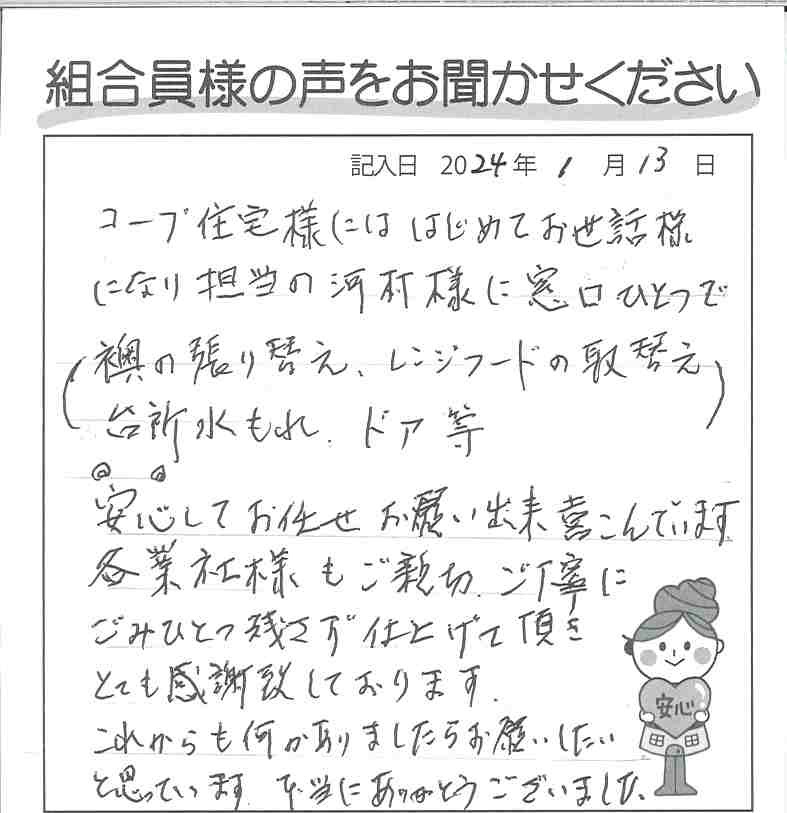 組合員様の声をお聞かせください
記入日 2024年 1月 13日
コープ住宅様には はじめてお世話様
になり担当の河村様に窓口ひとつで
(襖の張り替え、レンジフードの取替え
台所水もれ、ドア等)
安心してお任せお願い出来喜こんでいます
各業社様もご親切、ご丁寧に
ごみひとつ残さず仕上げて頂き
とても感謝致しております。
これからも何かありましたらお願いしたい
と思っています。本当にありがとうございました。
安心